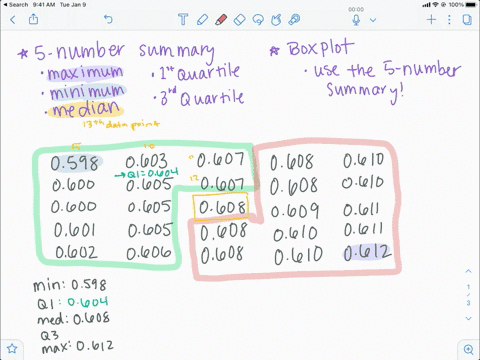 Search 9:41 AM Tue Jan 9
100%
00:00
★ 5-number summary
• maximum
• minimum
• median
13th data point
• 1st Quartile
• 3rd Quartile
★ Boxplot
• use the 5-number
Summary!
5 10
0.598 0.603 0.607 0.608 0.610
→Q1=0.604 12
0.600 0.605 0.607 0.608 0.610
0.600 0.605 0.608 0.609 0.611
0.601 0.605 0.608 0.610 0.611
0.602 0.606 0.608 0.610 0.612
min: 0.598
Q1: 0.604
med: 0.608
Q3
max: 0.612
1
3